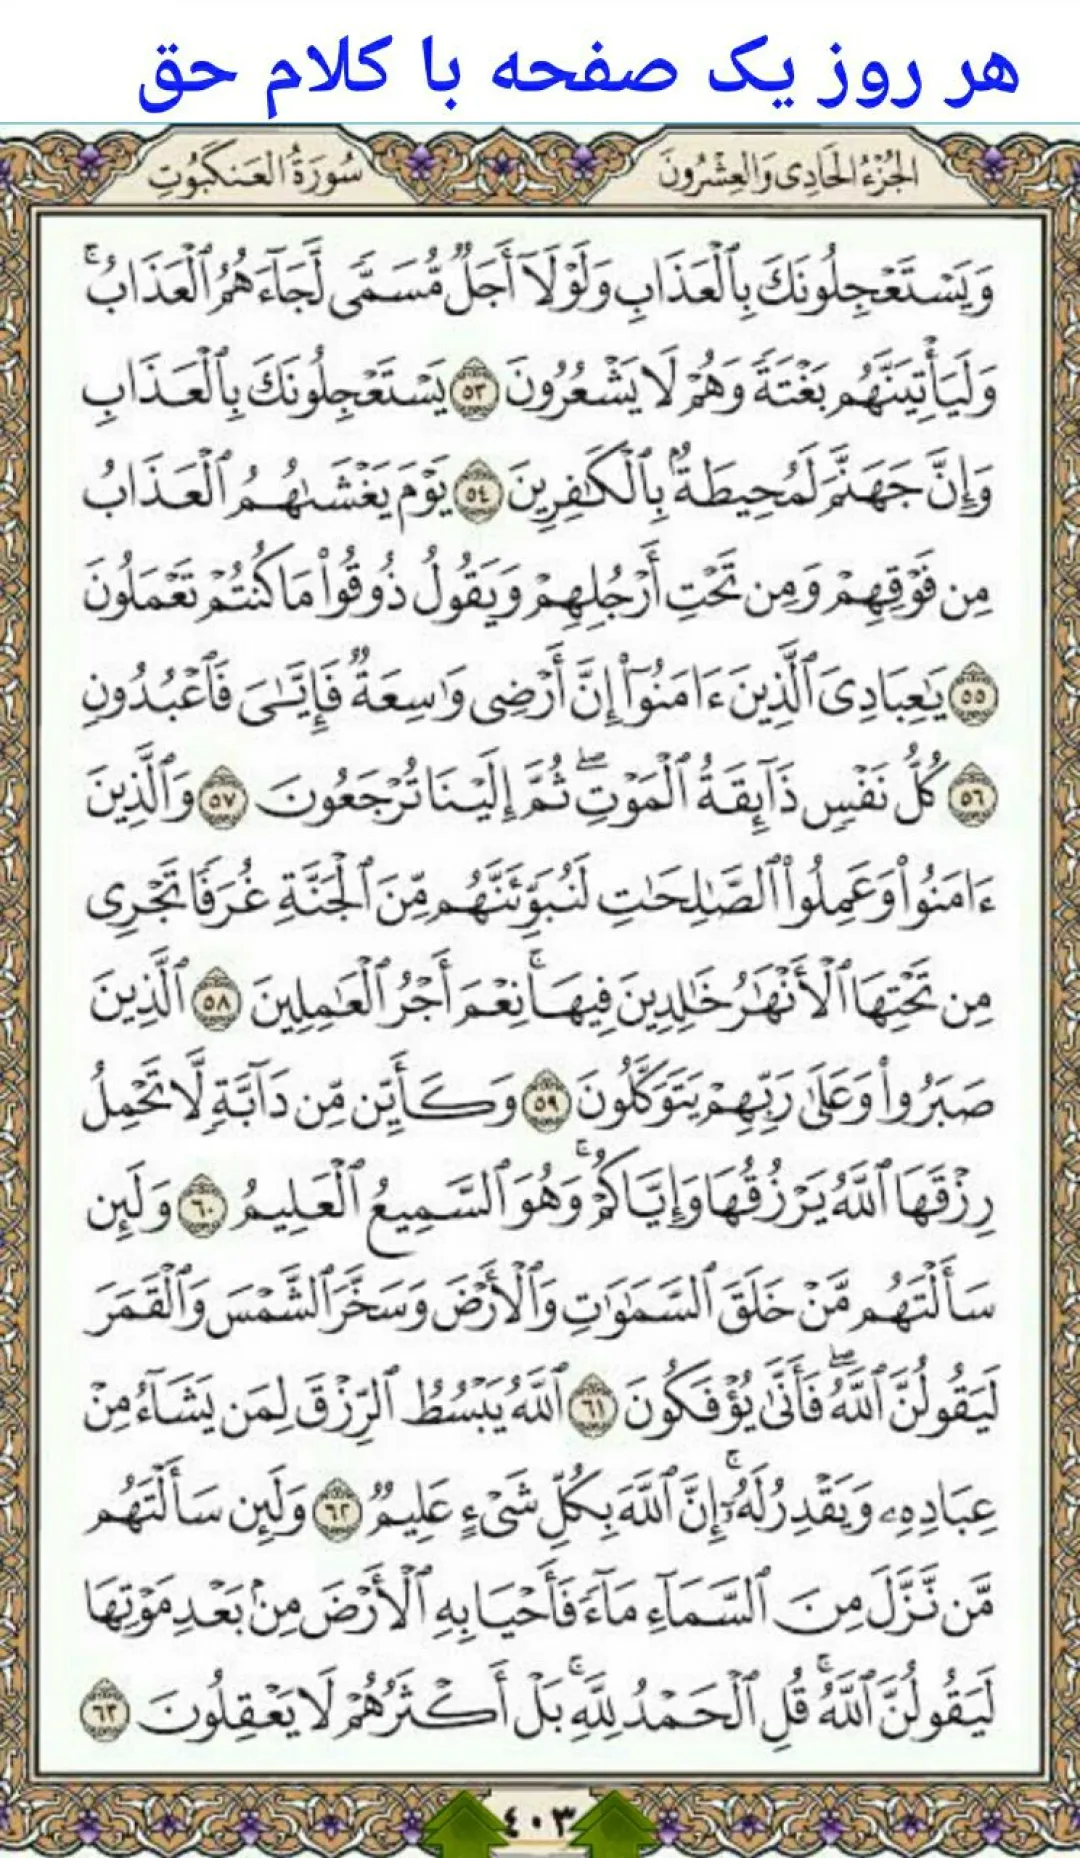 هر روز یک صفحه با کلام حق
الجُزْءُ الحَادِى وَالعِشْرُونَ
سُورَةُ العَنكَبُوتِ
وَيَسْتَعْجِلُونَكَ بِٱلْعَذَابِ وَلَوْلَآ أَجَلٌ مُّسَمًّى لَّجَآءَهُمُ ٱلْعَذَابُۚ
وَلَيَأْتِيَنَّهُم بَغْتَةً وَهُمْ لَا يَشْعُرُونَ ٥٣ يَسْتَعْجِلُونَكَ بِٱلْعَذَابِ
وَإِنَّ جَهَنَّمَ لَمُحِيطَةٌۢ بِٱلْكَٰفِرِينَ ٥٤ يَوْمَ يَغْشَىٰهُمُ ٱلْعَذَابُ
مِن فَوْقِهِمْ وَمِن تَحْتِ أَرْجُلِهِمْ وَيَقُولُ ذُوقُوا۟ مَا كُنتُمْ تَعْمَلُونَ
٥٥ يَٰعِبَادِىَ ٱلَّذِينَ ءَامَنُوٓا۟ إِنَّ أَرْضِى وَٰسِعَةٌ فَإِيَّٰىَ فَٱعْبُدُونِ
٥٦ كُلُّ نَفْسٍ ذَآئِقَةُ ٱلْمَوْتِۖ ثُمَّ إِلَيْنَا تُرْجَعُونَ ٥٧ وَٱلَّذِينَ
ءَامَنُوا۟ وَعَمِلُوا۟ ٱلصَّٰلِحَٰتِ لَنُبَوِّئَنَّهُم مِّنَ ٱلْجَنَّةِ غُرَفًا تَجْرِى
مِن تَحْتِهَا ٱلْأَنْهَٰرُ خَٰلِدِينَ فِيهَاۚ نِعْمَ أَجْرُ ٱلْعَٰمِلِينَ ٥٨ ٱلَّذِينَ
صَبَرُوا۟ وَعَلَىٰ رَبِّهِمْ يَتَوَكَّلُونَ ٥٩ وَكَأَيِّن مِّن دَآبَّةٍ لَّا تَحْمِلُ
رِزْقَهَا ٱللَّهُ يَرْزُقُهَا وَإِيَّاكُمْۚ وَهُوَ ٱلسَّمِيعُ ٱلْعَلِيمُ ٦٠ وَلَئِن
سَأَلْتَهُم مَّنْ خَلَقَ ٱلسَّمَٰوَٰتِ وَٱلْأَرْضَ وَسَخَّرَ ٱلشَّمْسَ وَٱلْقَمَرَ
لَيَقُولُنَّ ٱللَّهُۖ فَأَنَّىٰ يُؤْفَكُونَ ٦١ ٱللَّهُ يَبْسُطُ ٱلرِّزْقَ لِمَن يَشَآءُ مِنْ
عِبَادِهِۦ وَيَقْدِرُ لَهُۥٓۚ إِنَّ ٱللَّهَ بِكُلِّ شَىْءٍ عَلِيمٌ ٦٢ وَلَئِن سَأَلْتَهُم
مَّن نَّزَّلَ مِنَ ٱلسَّمَآءِ مَآءً فَأَحْيَا بِهِ ٱلْأَرْضَ مِنۢ بَعْدِ مَوْتِهَا
لَيَقُولُنَّ ٱللَّهُۚ قُلِ ٱلْحَمْدُ لِلَّهِۚ بَلْ أَكْثَرُهُمْ لَا يَعْقِلُونَ ٦٣
٤٠٣